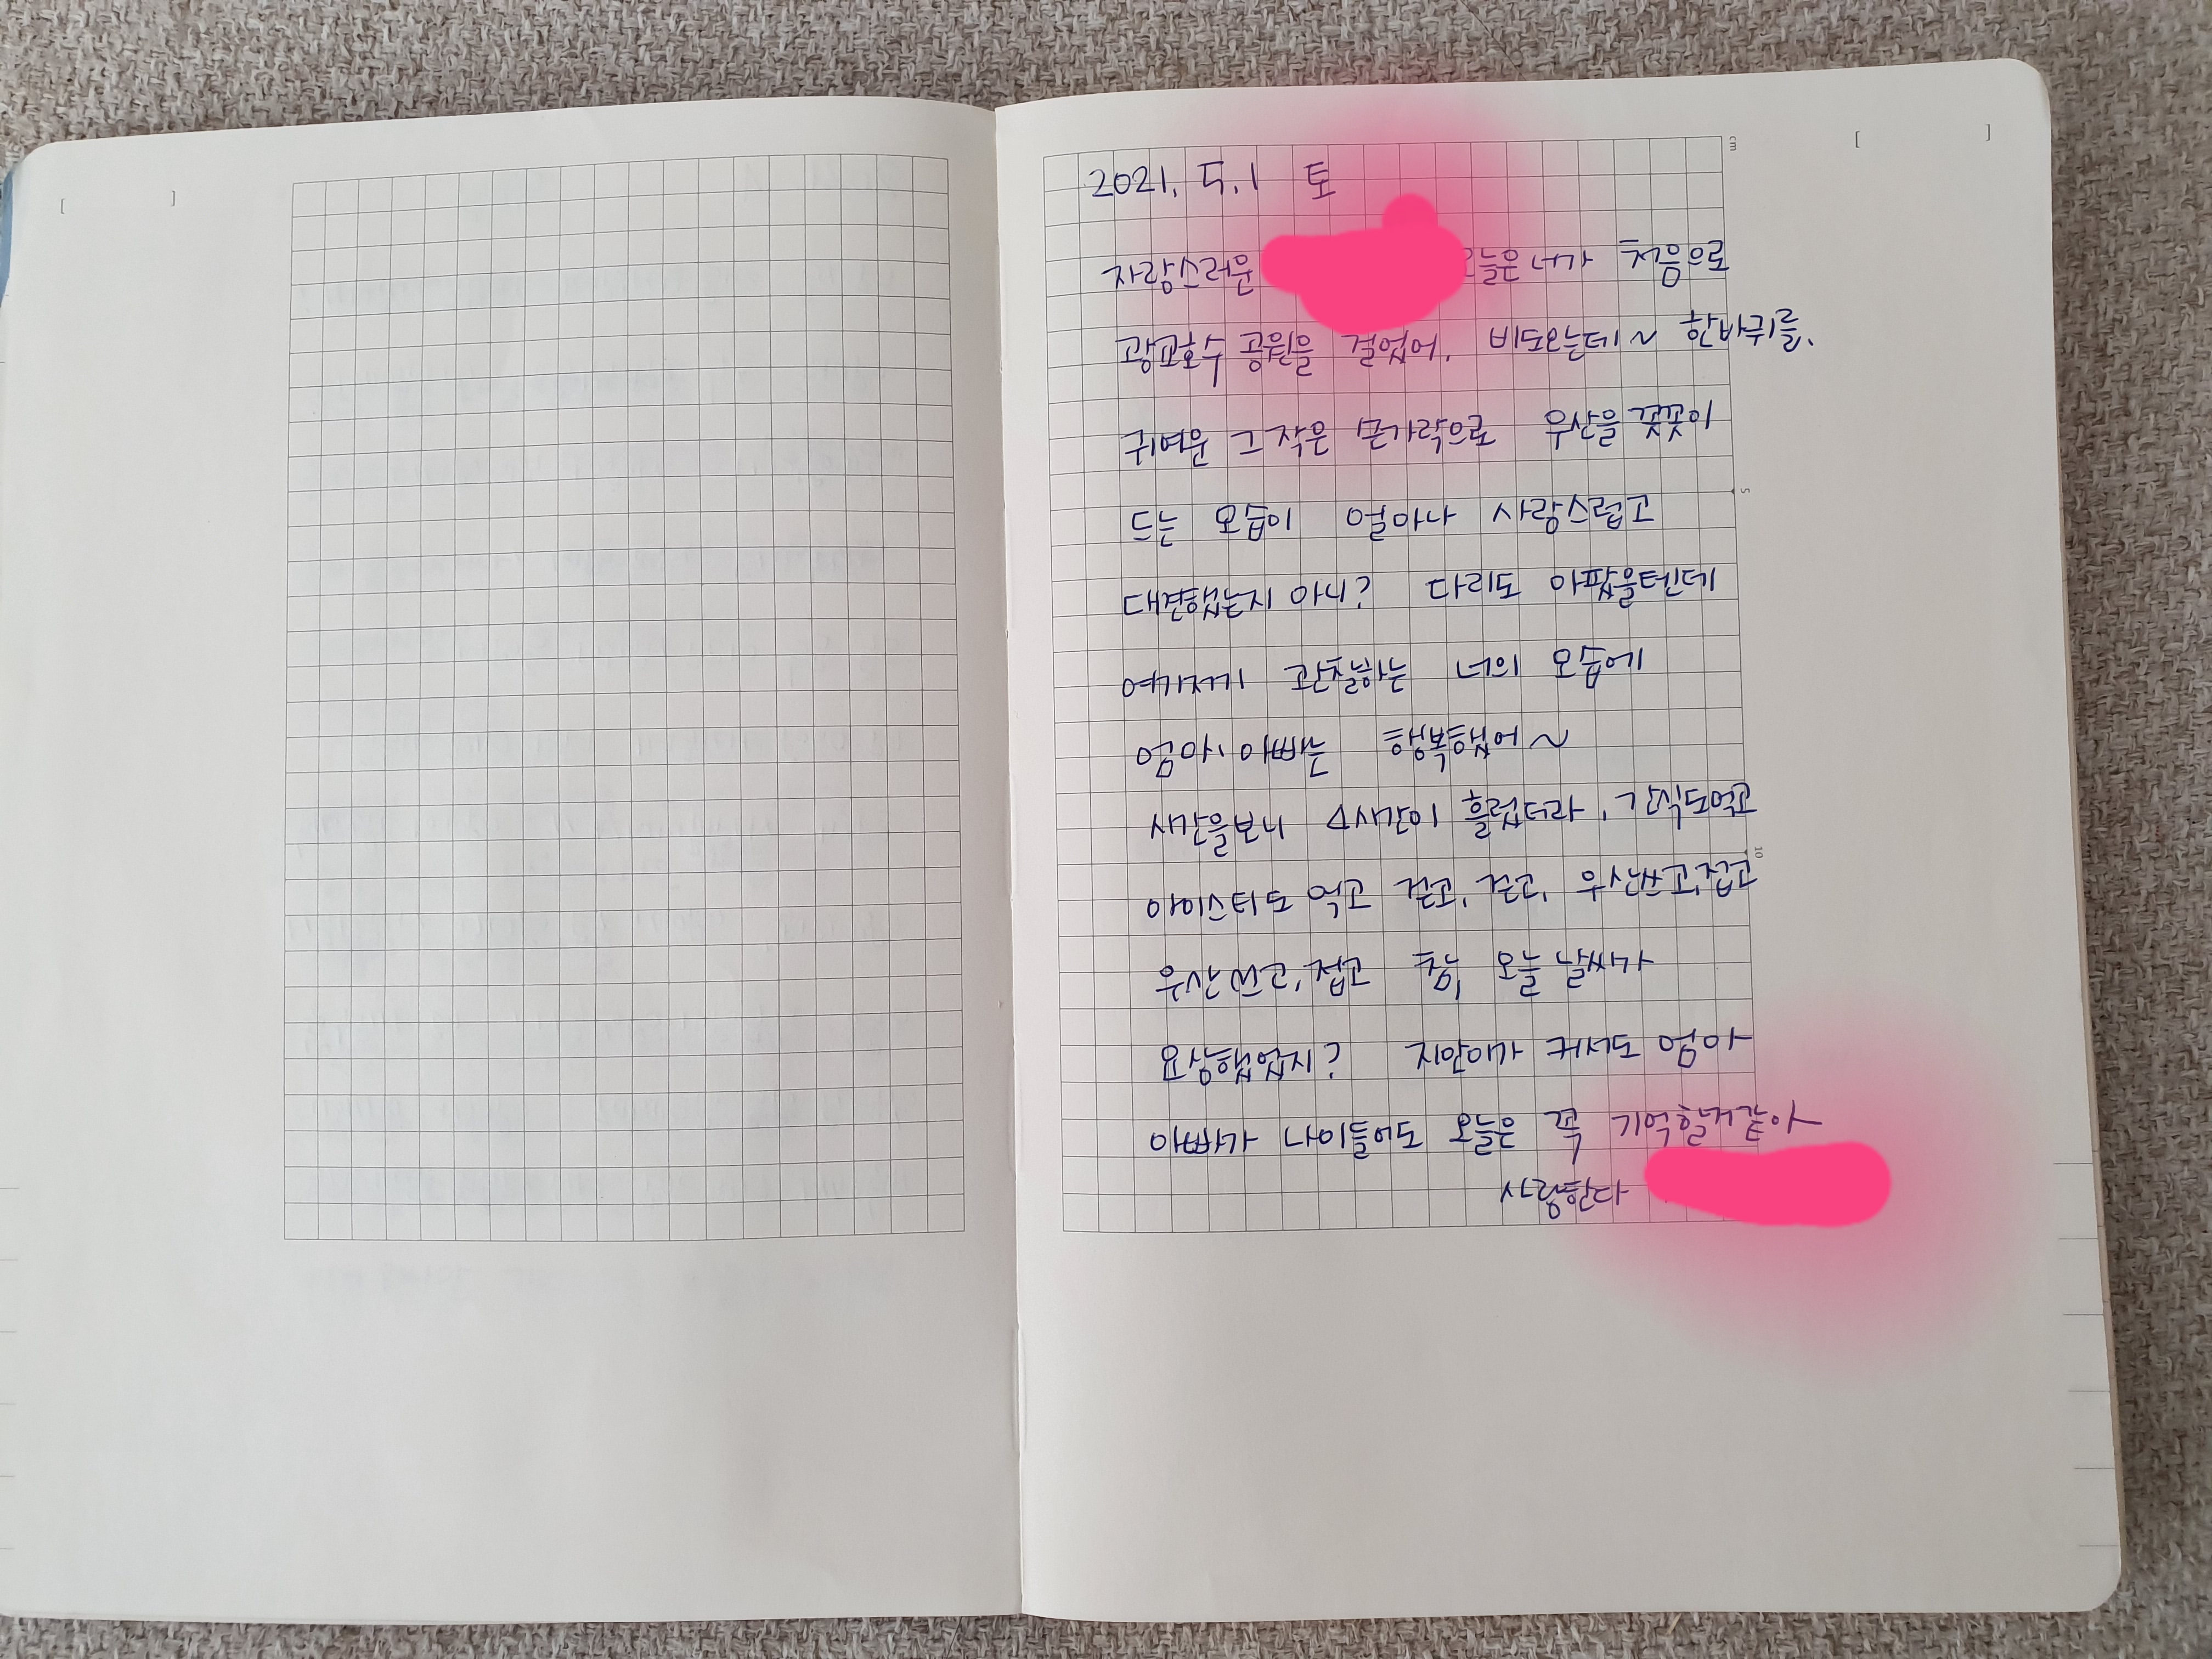 2021. 5.1 토
자랑스러운 오늘은 너가 처음으로
광교호수 공원을 걸었어. 비도오는데 ~ 한바퀴를.
귀여운 그 작은 손가락으로 우산을 꼿꼿이
드는 모습이 얼마나 사랑스럽고
대견했는지 아니? 다리도 아팠을텐데
여기저기 관찰하는 너의 모습에
엄마 아빠는 행복했어~
시간을보니 4시간이 흘렀더라. 간식도먹고
아이스티도 먹고 걷고, 걷고, 우산쓰고,접고
우산펴고,접고 참, 오늘 날씨가
요상했었지? 지안이가 커서도 엄마
아빠가 나이들어도 오늘은 꼭 기억할것같아
사랑한다